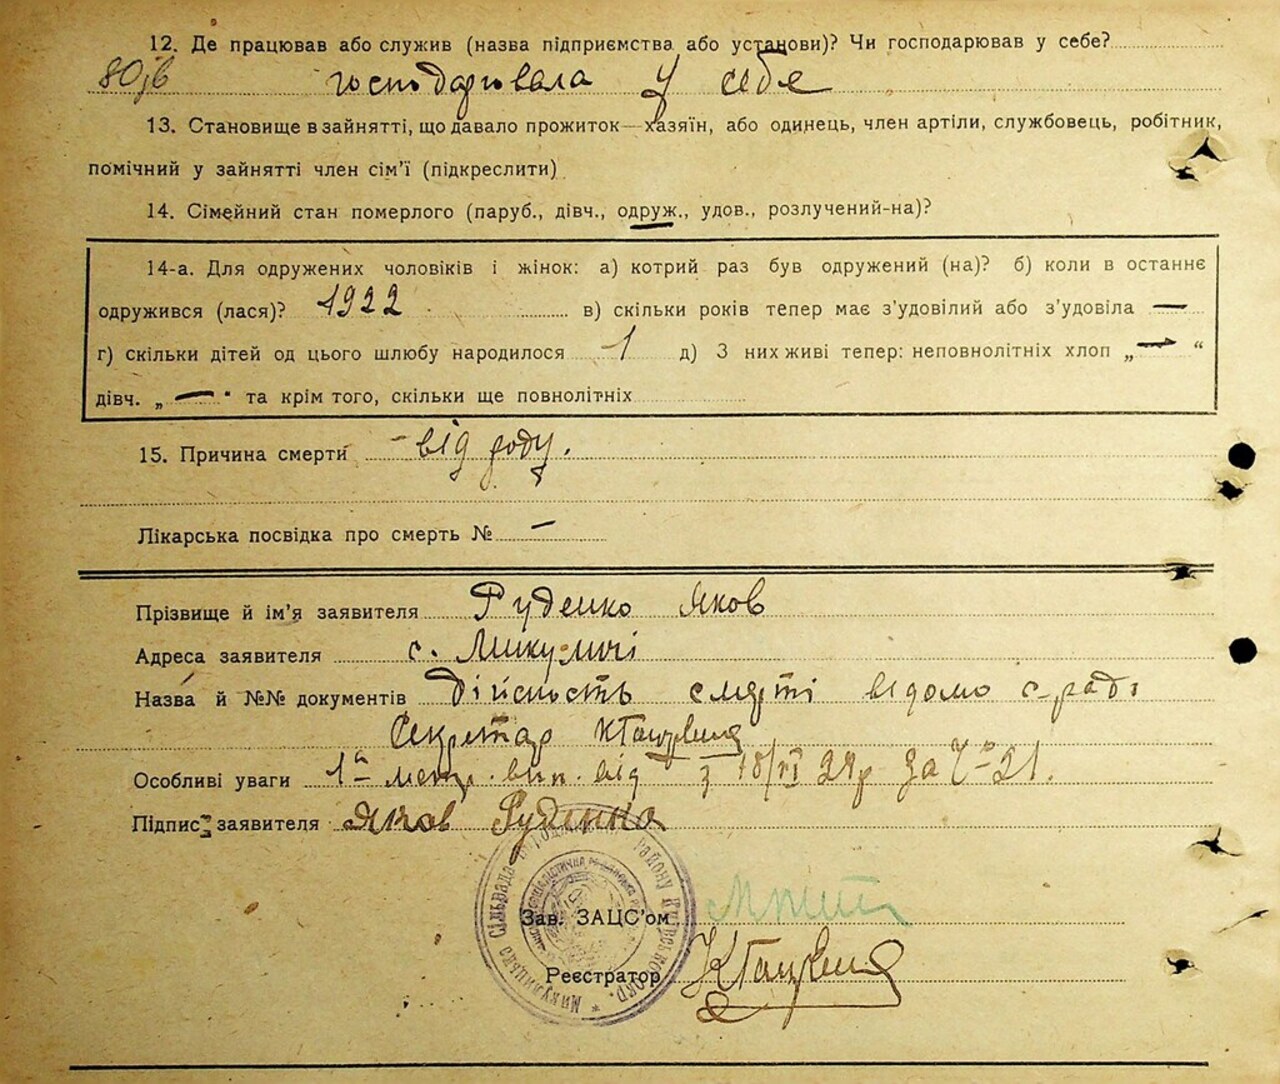 12. Де працював або служив (назва підприємства або установи)? Чи господарював у себе?
господаровала у себе
13. Становище в зайнятті, що давало прожиток—хазяїн, або одинець, член артіли, службовець, робітник,
помічний у зайнятті член сім’ї (підкреслити)
14. Сімейний стан померлого (паруб., дівч., одруж., удов., розлучений-на)?
14-а. Для одружених чоловіків і жінок: а) котрий раз був одружений (на)? б) коли в останнє
одружився (лася)? 1922 в) скільки років тепер має з’удовілий або з’удовіла —
г) скільки дітей од цього шлюбу народилося 1 д) З них живі тепер: неповнолітніх хлоп „—“
дівч. „—“ та крім того, скільки ще повнолітніх
15. Причина смерти від роду.
Лікарська посвідка про смерть № —
Прізвище й ім’я заявителя Руденко Яков
Адреса заявителя с. Микуличі
Назва й №№ документів Дійсность смерті відомо с-раді
Секретар
Особливі уваги
Підпис заявителя Яков Руденко
Зав. ЗАЦС’ом
Реєстратор